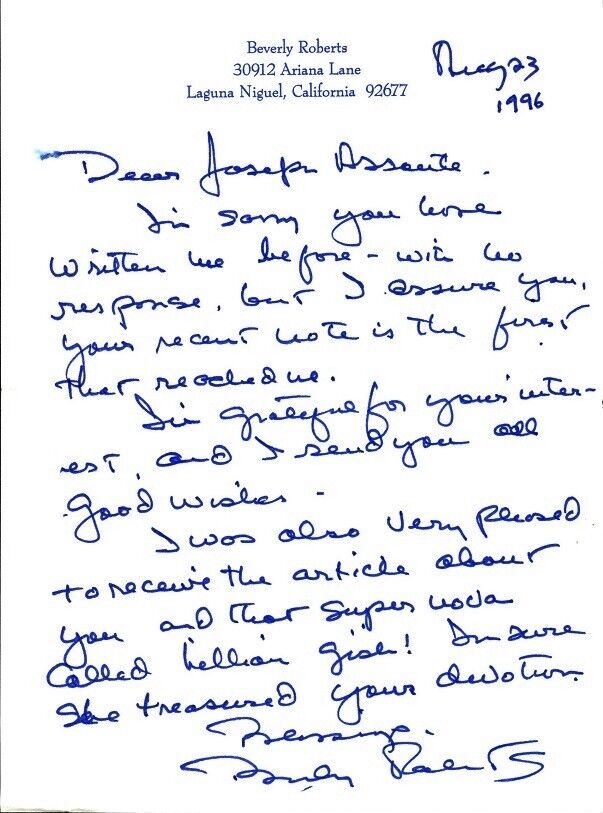 Beverly Roberts
30912 Ariana Lane
Laguna Niguel, California 92677
23
1996
Dear Joseph Assante.
I'm sorry you have
written me before - with no
response, but I assure you,
your recent note is the first
that reached me.
I'm grateful for your inter-
est, and I send you all
good wishes -
I was also very pleased
to receive the article about
you and that super nova
called Lillian Gish! I'm sure
she treasured your devotion.
Blessings.
Beverly Roberts